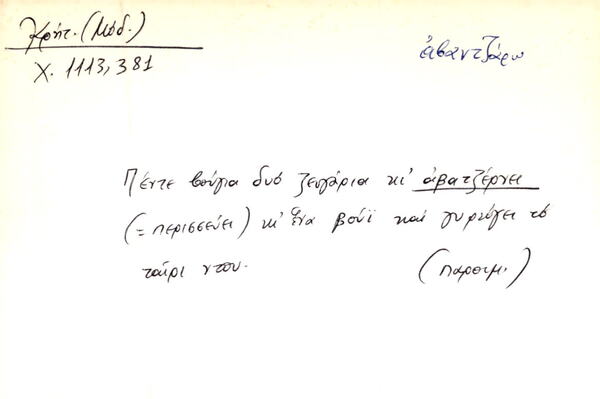 Κρήτ. (Μόδ.)
Χ. 1113, 381
ἀβαντζάρω
Πέντε βούγια δυό ζευγάρια κι' ἀβατζέρνει
(= περισσεύει) κ' ἕνα βούϊ καί γυρεύγει τό
ταίρι ντου. (παροιμ.)